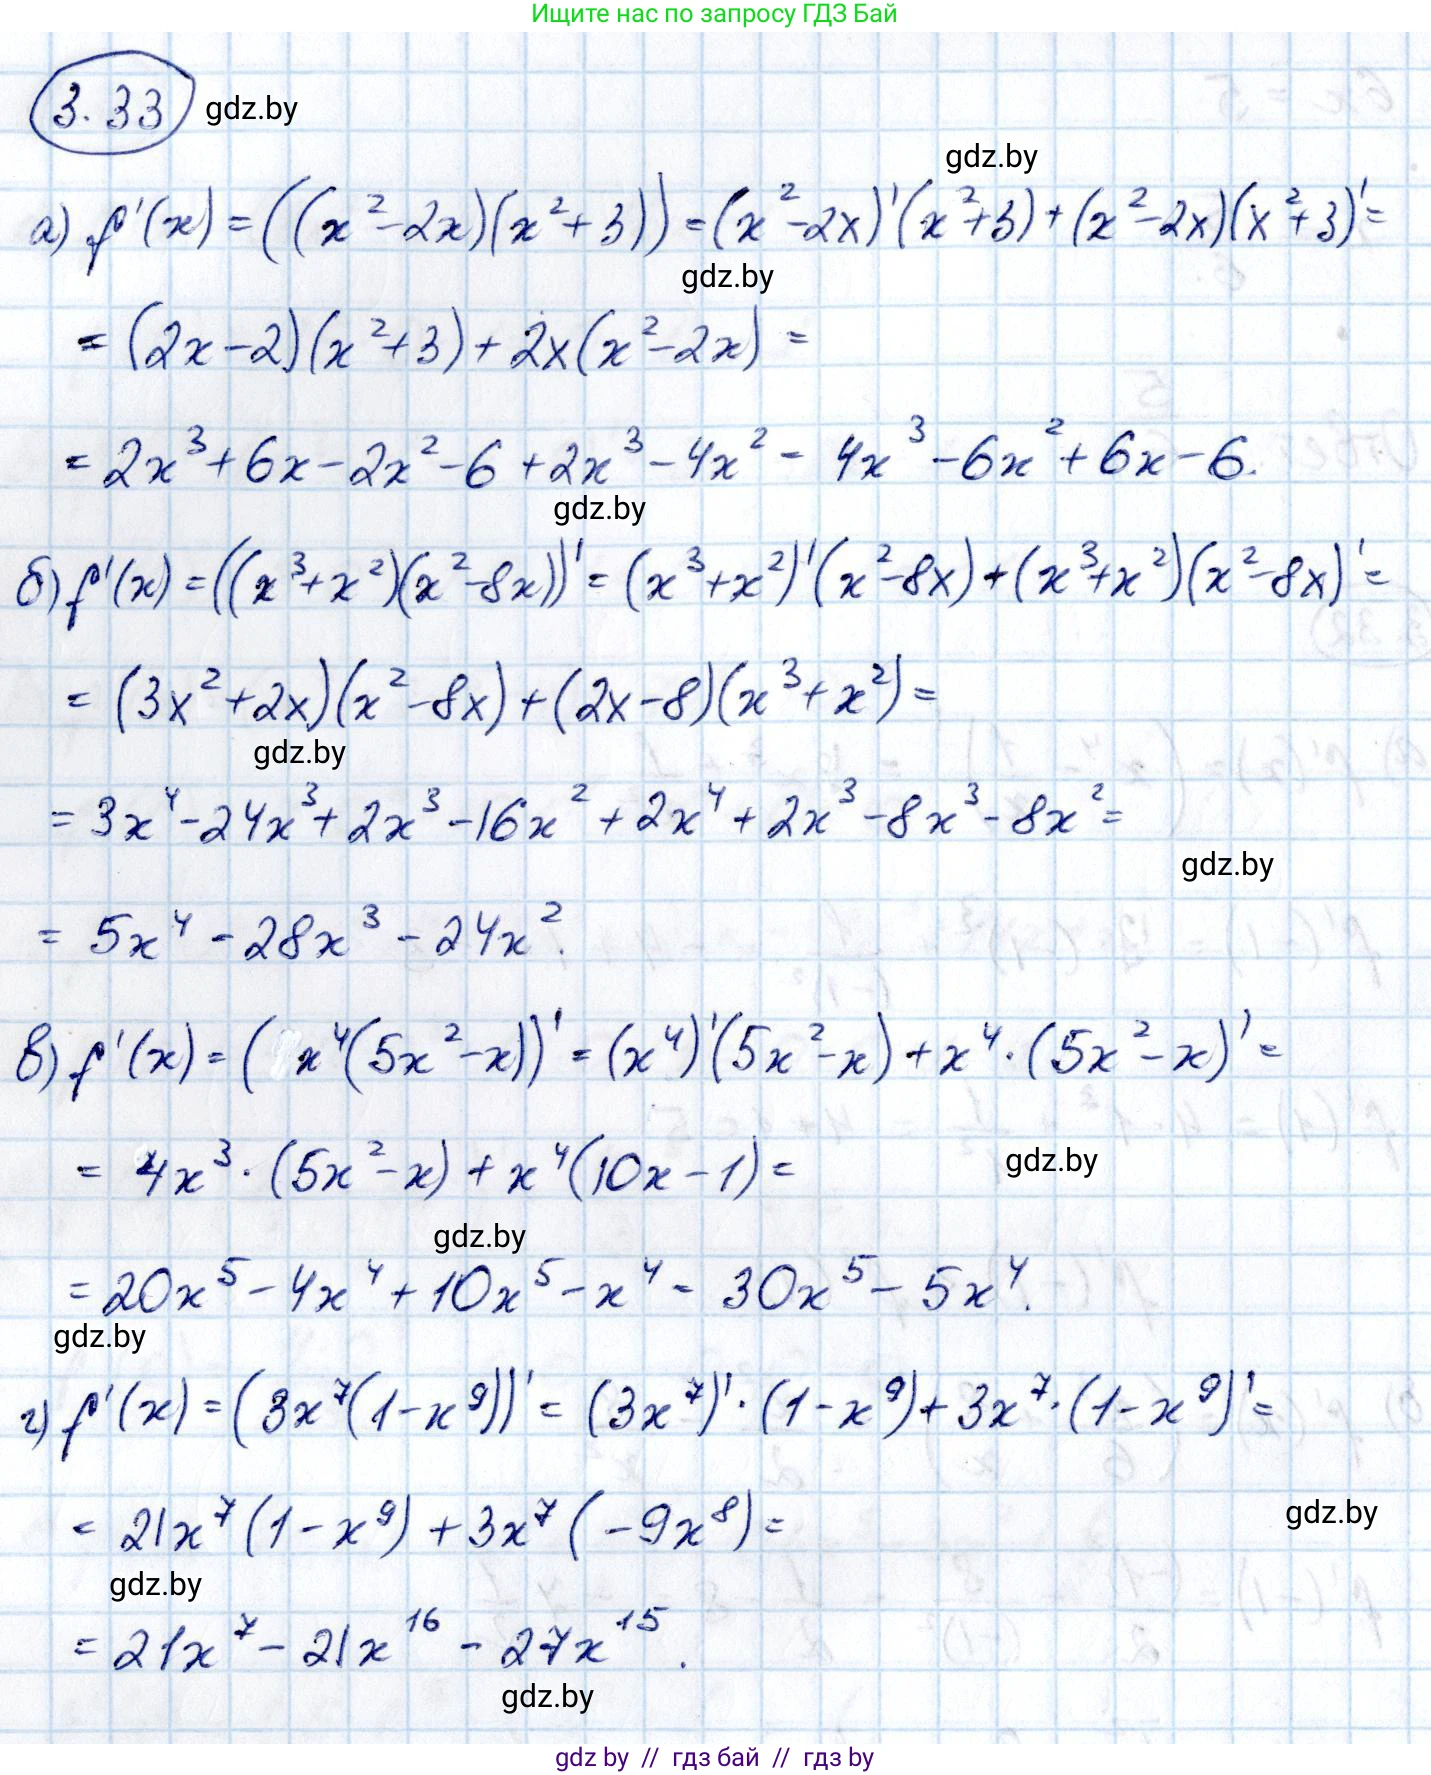 Ищите нас по запросу ГДЗ Бай
3.33 gdz.by
gdz.by
а) f'(x) = ((x²-2x)(x²+3)) = (x²-2x)'(x²+3) + (x²-2x)(x²+3)' =
gdz.by
= (2x-2)(x²+3) + 2x(x²-2x) =
= 2x³+6x-2x²-6+2x³-4x² = 4x³-6x²+6x-6.
gdz.by
б) f'(x) = ((x³+x²)(x²-8x))' = (x³+x²)'(x²-8x) + (x³+x²)(x²-8x)' =
= (3x²+2x)(x²-8x) + (2x-8)(x³+x²) =
gdz.by
= 3x⁴-24x³+2x³-16x²+2x⁴+2x³-8x³-8x² =
gdz.by
= 5x⁴-28x³-24x².
в) f'(x) = (x⁴(5x²-x))' = (x⁴)'(5x²-x) + x⁴·(5x²-x)' =
= 4x³·(5x²-x) + x⁴(10x-1) =
gdz.by
gdz.by
= 20x⁵-4x⁴+10x⁵-x⁴ = 30x⁵-5x⁴.
gdz.by
г) f'(x) = (3x⁷(1-x⁹))' = (3x⁷)'·(1-x⁹) + 3x⁷·(1-x⁹)' =
= 21x⁷(1-x⁹) + 3x⁷(-9x⁸) =
gdz.by
gdz.by
= 21x⁷-21x¹⁶-27x¹⁵.
gdz.by
gdz by // гдз бай // гдз by